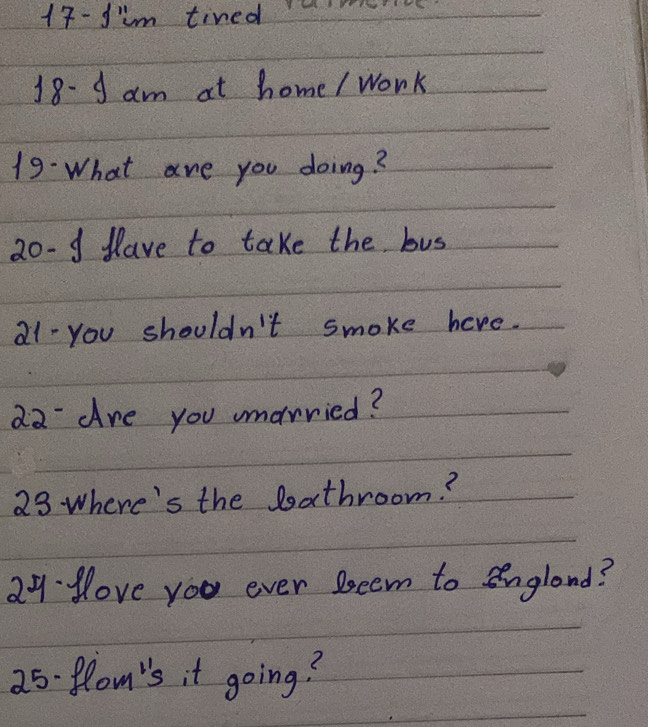 17- I"m tired
18- I am at home/Work
19- What are you doing?
20- I Have to take the bus
21- you shouldn't smoke here.
22- Are you married?
23. Where's the bathroom?
24- Have you ever beem to England?
25- How"s it going?